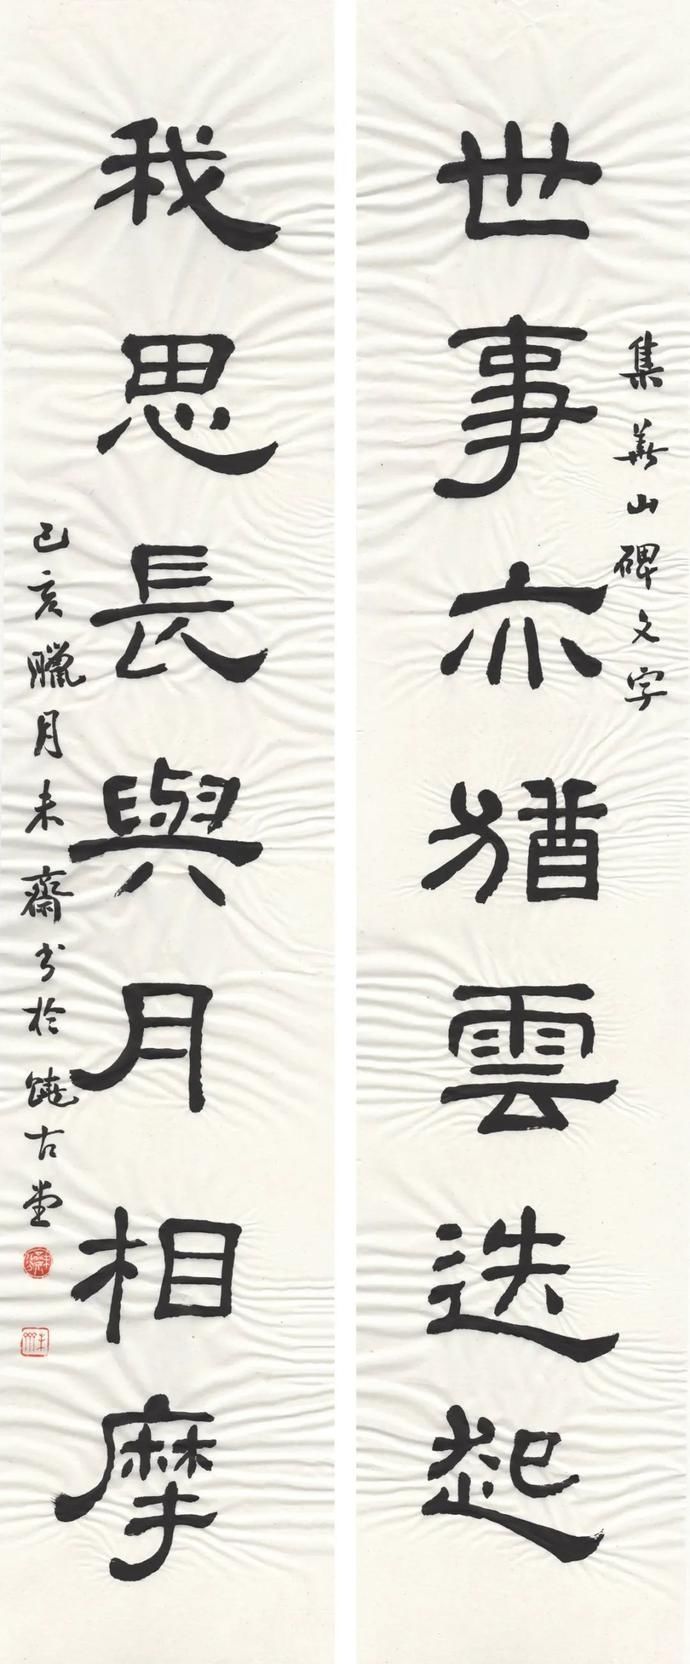 集華山碑文字
世事亦猶雲迭起
我思長與月相摩
己亥臘月未齋書於饒古堂